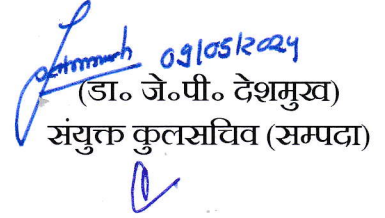 09/05/2024
(डा० जे०पी० देशमुख)
संयुक्त कुलसचिव (सम्पदा)